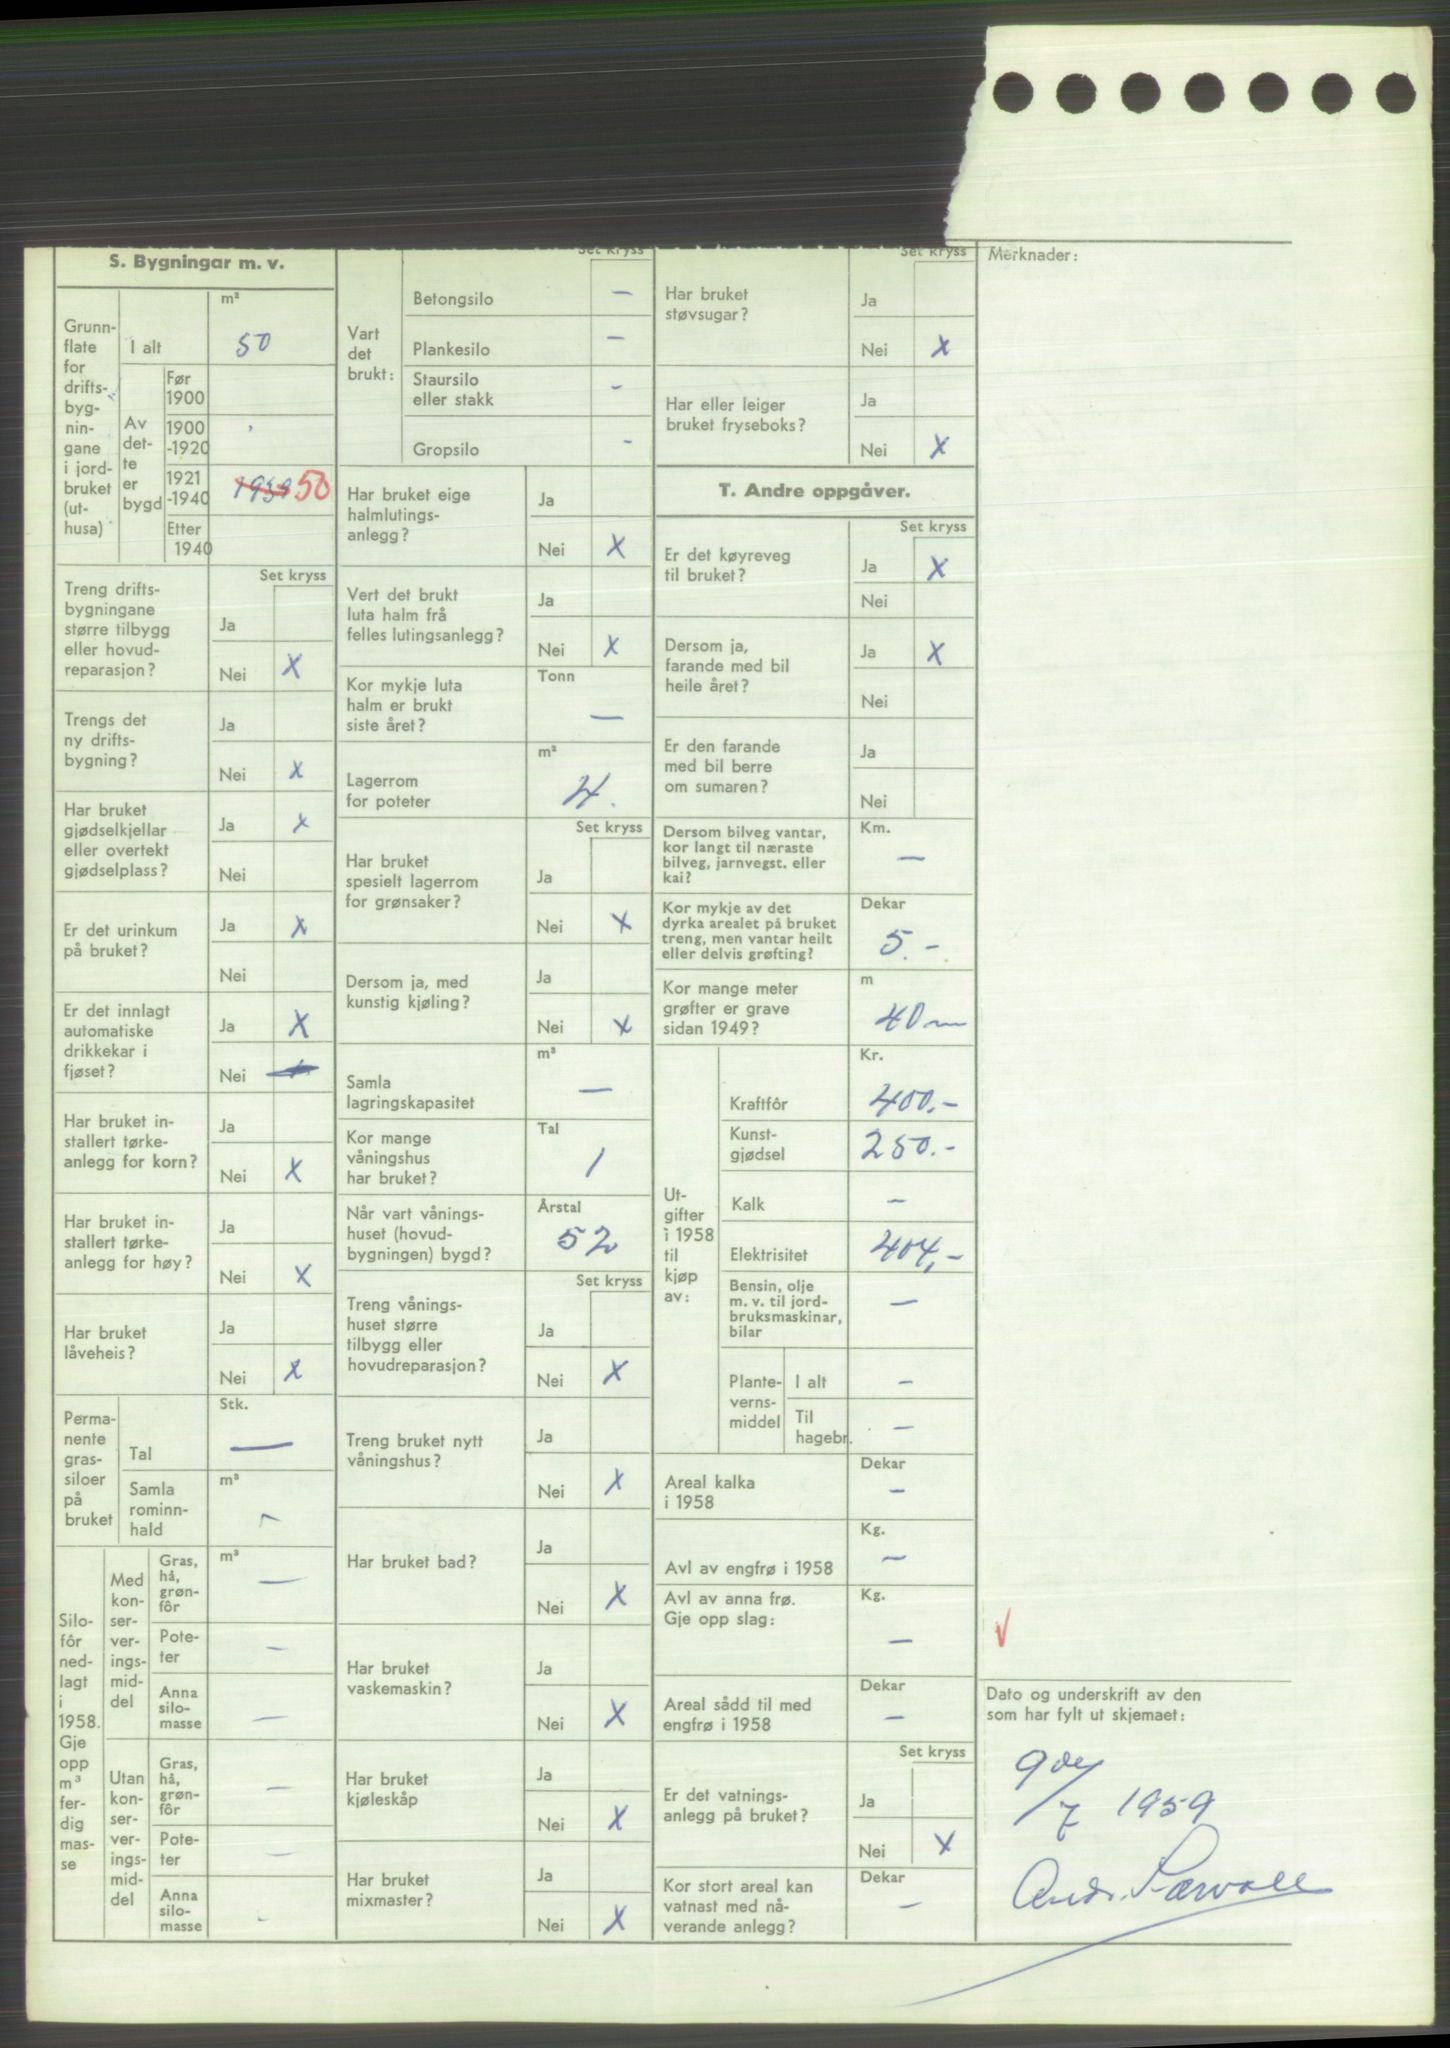 S. Bygningar m. v.
Grunn-
flate
for
drifts-
byg-
nin-
gane
i jord-
bruket
(ut-
husa)
m²
I alt 50
Av
det-
te
er
bygd
Før
1900
1900
-1920
1921
-1940 1939 50
Etter
1940
Set kryss
Treng drifts-
bygningane
større tilbygg
eller hovud-
reparasjon?
Ja
Nei X
Trengs det
ny drifts-
bygning?
Ja
Nei X
Har bruket
gjødselkjellar
eller overtekt
gjødselplass?
Ja X
Nei
Er det urinkum
på bruket?
Ja X
Nei
Er det innlagt
automatiske
drikkekar i
fjøset?
Ja X
Nei
Har bruket in-
stallert tørke-
anlegg for korn?
Ja
Nei X
Har bruket in-
stallert tørke-
anlegg for høy?
Ja
Nei X
Har bruket
låveheis?
Ja
Nei X
Perma-
nente
gras-
siloer
på
bruket
Stk.
Tal —
Samla
rominn-
hald
m³
—
Silo-
fôr
ned-
lagt
i
1958.
Gje
opp
m³
fer-
dig
mas-
se
Med
kon-
ser-
ver-
ings-
mid-
del
Gras,
hå,
grøn-
fôr
m³
—
Pote-
ter —
Anna
silo-
masse —
Utan
kon-
ser-
ver-
ings-
mid-
del
Gras,
hå,
grøn-
fôr —
Pote-
ter —
Anna
silo-
masse -
Set kryss
Vart
det
brukt:
Betongsilo —
Plankesilo —
Staursilo
eller stakk -
Gropsilo -
Har bruket eige
halmlutings-
anlegg?
Ja
Nei X
Vert det brukt
luta halm frå
felles lutingsanlegg?
Ja
Nei X
Kor mykje luta
halm er brukt
siste året?
Tonn
—
Lagerrom
for poteter
m³
4.
Set kryss
Har bruket
spesielt lagerrom
for grønsaker?
Ja
Nei X
Dersom ja, med
kunstig kjøling?
Ja
Nei X
Samla
lagringskapasitet
m³
—
Kor mange
våningshus
har bruket?
Tal
1
Når vart vånings-
huset (hovud-
bygningen) bygd?
Årstal
52
Set kryss
Treng vånings-
huset større
tilbygg eller
hovudreparasjon?
Ja
Nei X
Treng bruket nytt
våningshus?
Ja
Nei X
Har bruket bad?
Ja
Nei X
Har bruket
vaskemaskin?
Ja
Nei X
Har bruket
kjøleskåp
Ja
Nei X
Har bruket
mixmaster?
Ja
Nei X
Set kryss
Har bruket
støvsugar?
Ja
Nei X
Har eller leiger
bruket fryseboks?
Ja
Nei X
T. Andre oppgåver.
Set kryss
Er det køyreveg
til bruket?
Ja X
Nei
Dersom ja,
farande med bil
heile året?
Ja X
Nei
Er den farande
med bil berre
om sumaren?
Ja
Nei
Dersom bilveg vantar,
kor langt til næraste
bilveg, jarnvegst. eller
kai?
Km.
—
Kor mykje av det
dyrka arealet på bruket
treng, men vantar heilt
eller delvis grøfting?
Dekar
5.-
Kor mange meter
grøfter er grave
sidan 1949?
m
40 m
Ut-
gifter
i 1958
til
kjøp
av:
Kr.
Kraftfôr 400.-
Kunst-
gjødsel 250.-
Kalk —
Elektrisitet 404,-
Bensin, olje
m. v. til jord-
bruksmaskinar,
bilar —
Plante-
verns-
middel
I alt -
Til
hagebr. —
Areal kalka
i 1958
Dekar
-
Avl av engfrø i 1958
Kg.
—
Avl av anna frø.
Gje opp slag:
Kg.
—
Areal sådd til med
engfrø i 1958
Dekar
—
Set kryss
Er det vatnings-
anlegg på bruket?
Ja
Nei X
Kor stort areal kan
vatnast med nå-
verande anlegg?
Dekar
—
Merknader:
Dato og underskrift av den
som har fylt ut skjemaet:
9de/7 1959